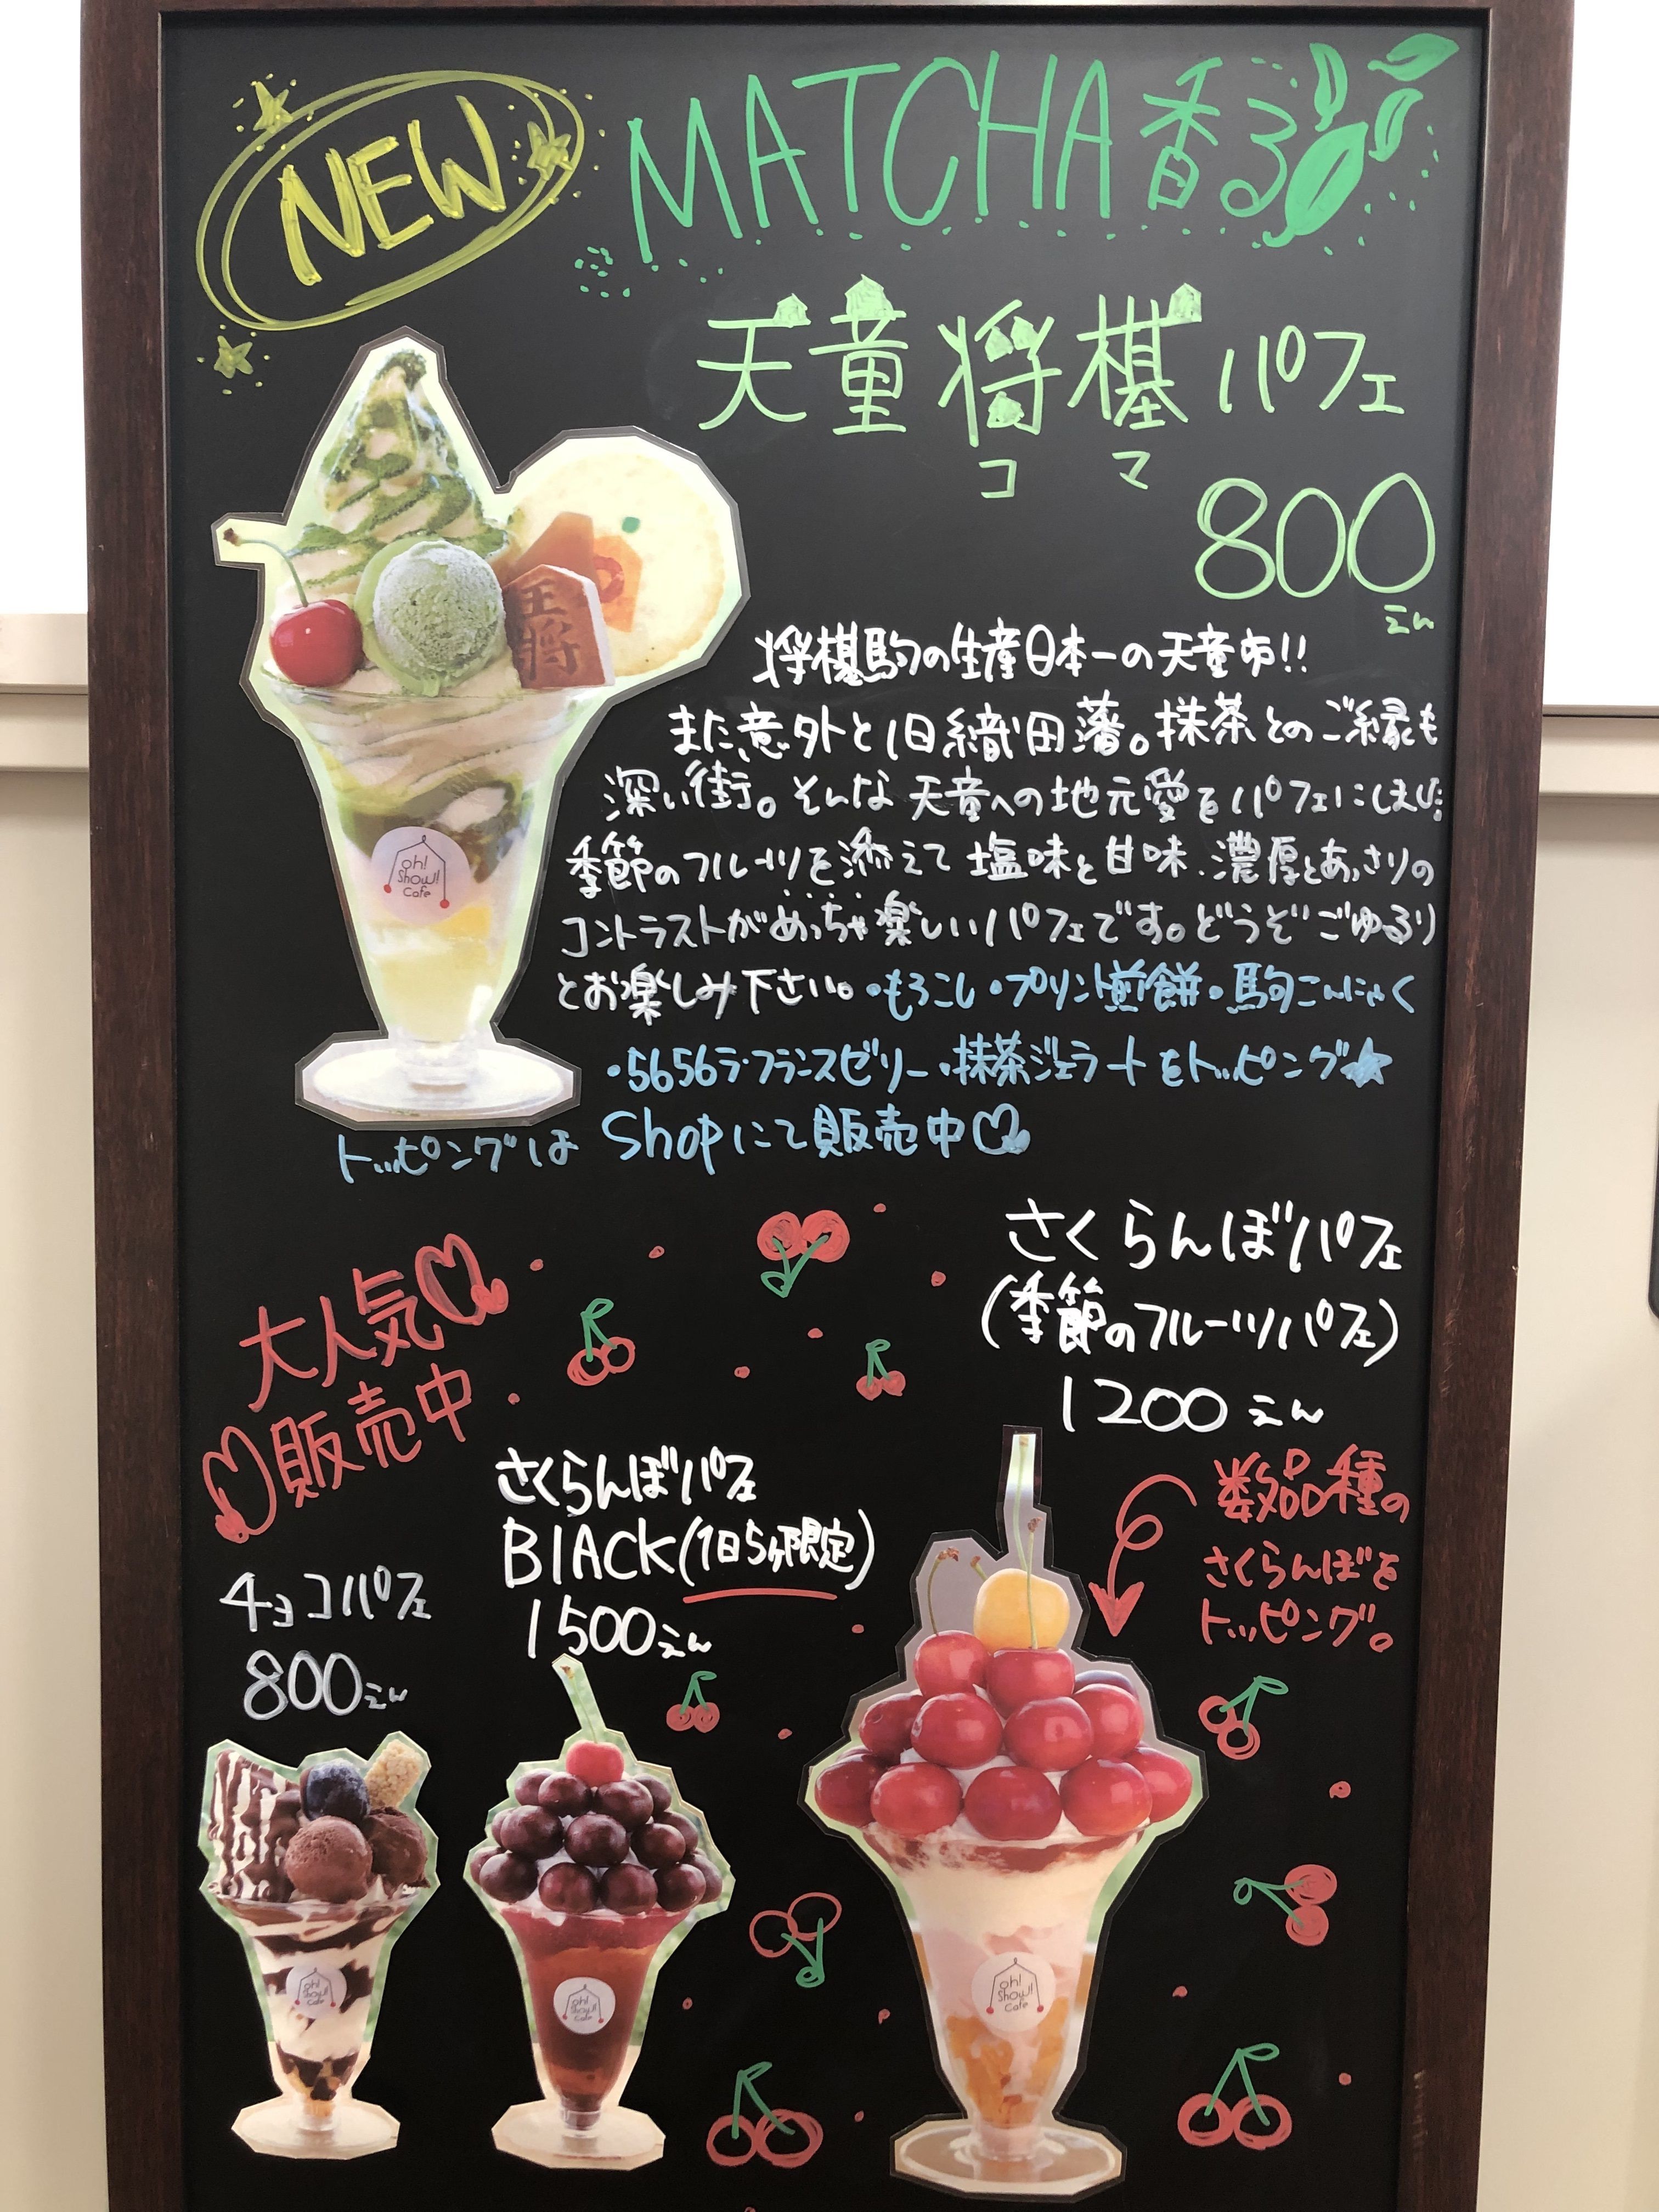 NEW
MATCHA香る
天童将棋パフェ
コマ
800
えん
将棋駒の生産日本一の天童市!!
また意外と旧織田藩。抹茶とのご縁も
深い街。そんな天童への地元愛をパフェにしました!
季節のフルーツを添えて塩味と甘味、濃厚とあっさりの
コントラストがめっちゃ楽しいパフェです。どうぞごゆるり
とお楽しみ下さい。・もろこし・プリント煎餅・駒こんにゃく
・5656ラ・フランスゼリー・抹茶ジェラートをトッピング★
トッピングは Shopにて販売中
王将
oh!
Show!
Cafe
大人気
販売中
さくらんぼパフェ
(季節のフルーツパフェ)
1200えん
数品種の
さくらんぼを
トッピング。
さくらんぼパフェ
BlACK(1日5ヶ限定)
1500えん
チョコパフェ
800えん
oh!
Show!
Cafe
oh!
Show!
Cafe
oh!
Show!
Cafe